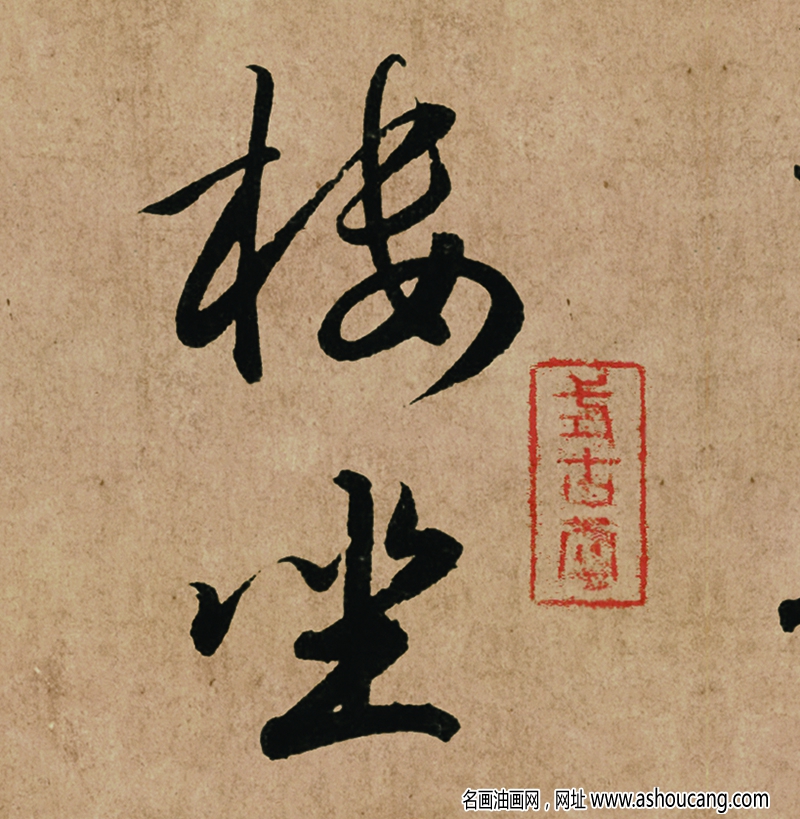 樓坐
名画油画网，网址 www.ashoucang.com